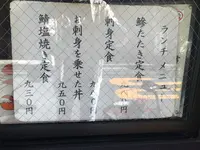 ランチ メニュー
鯵たたき定食
刺身定食
お刺身を乗せた丼
九五〇円
鯖塩焼き定食
九三〇円